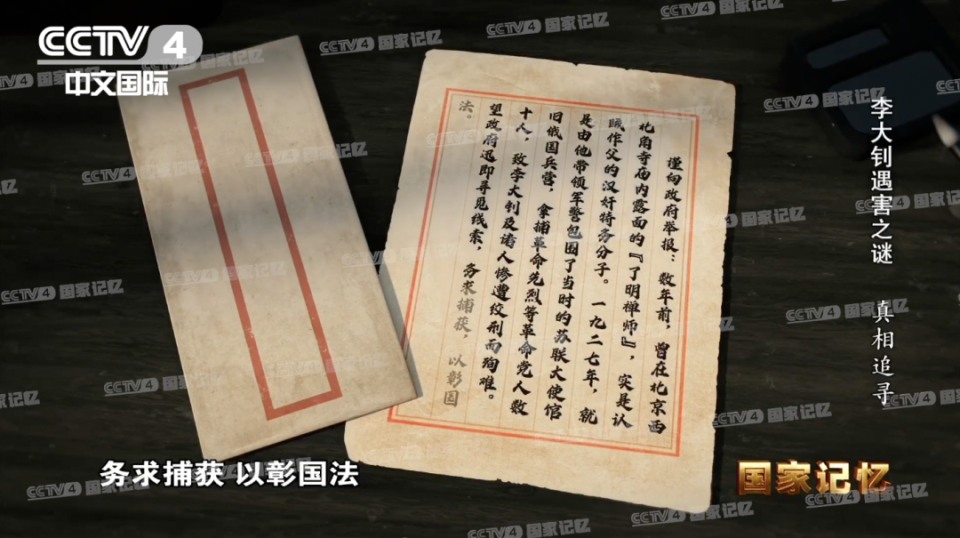 CCTV4
中文国际
谨向政府举报：数年前，曾在北京西
北角寺庙内露面的『了明禅师』，实是认
贼作父的汉奸特务分子。一九二七年，就
是由他带领军警包围了当时的苏联大使馆
旧俄国兵营，拿捕革命先烈等革命党人数
十人，致李大钊及诸人惨遭绞刑而殉难。
望政府迅即寻觅线索，务求捕获，以彰国
法。
李大钊遇害之谜 真相追寻
务求捕获 以彰国法
国家记忆
CCTV4 国家记忆